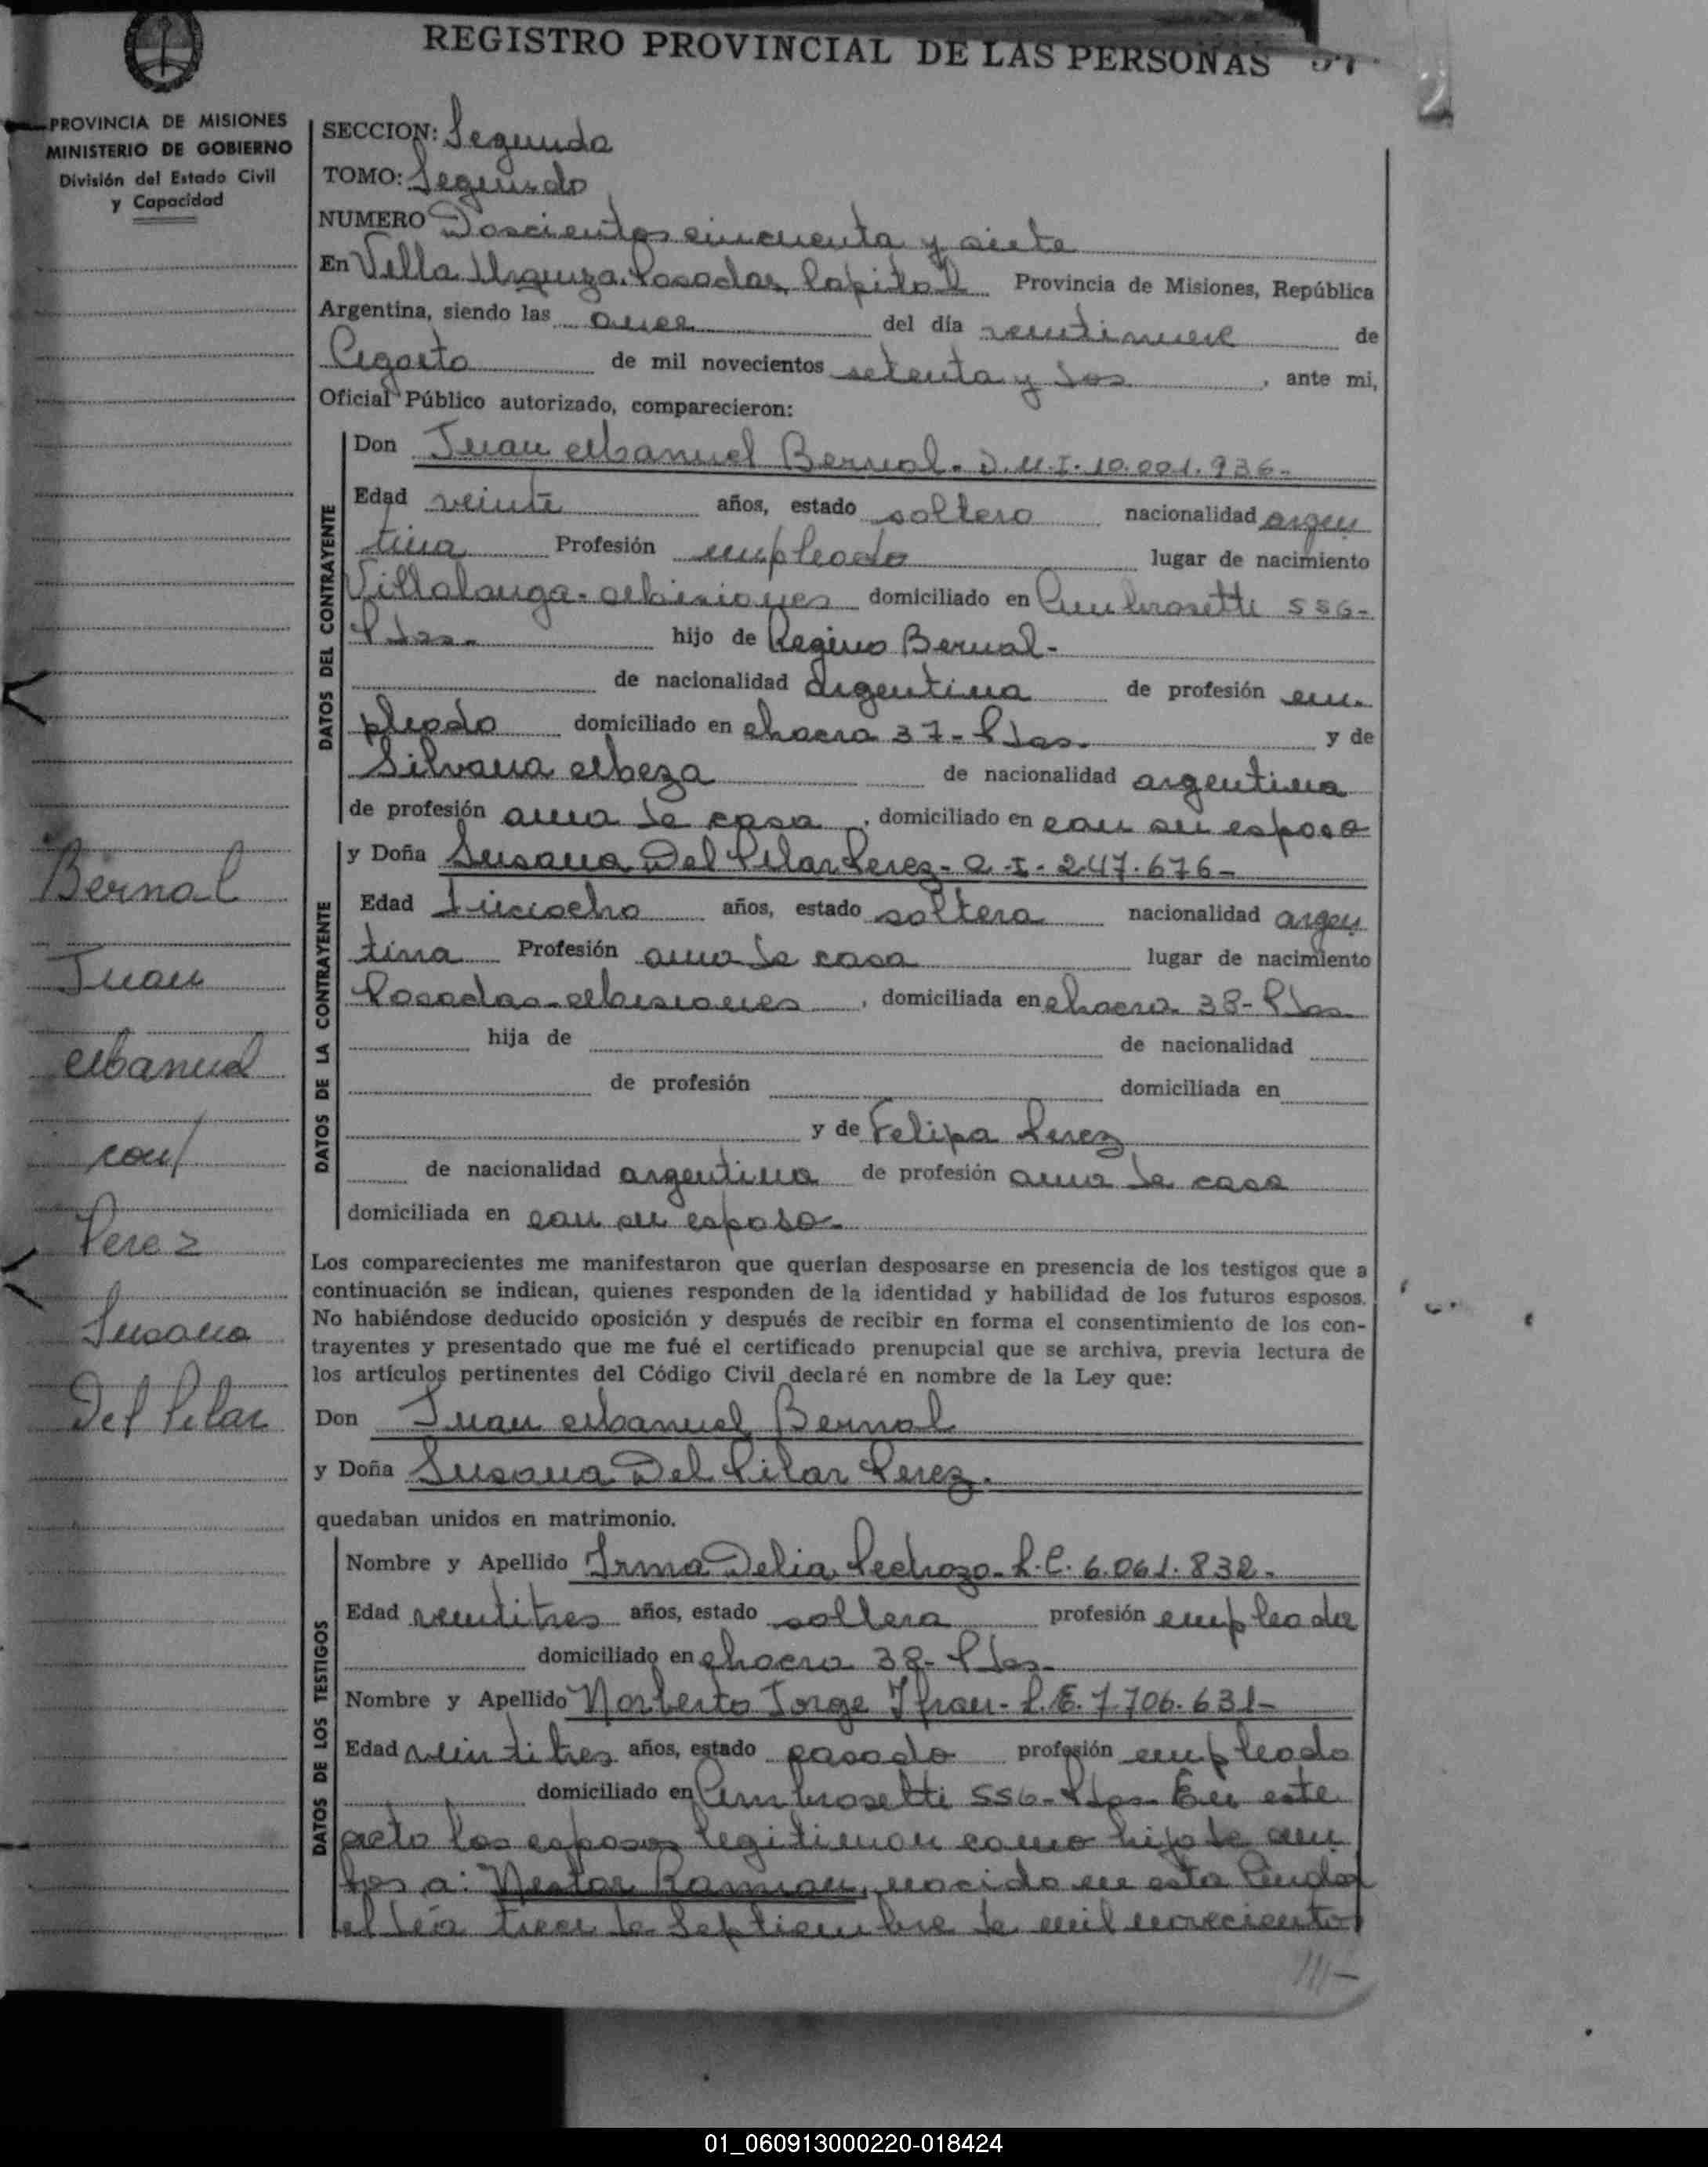 REGISTRO PROVINCIAL DE LAS PERSONAS
PROVINCIA DE MISIONES
MINISTERIO DE GOBIERNO
División del Estado Civil
y Capacidad
SECCION: Segunda
TOMO: Segundo
NUMERO Doscientos cincuenta y siete
En Villa Urquiza. Posadas, Capital Provincia de Misiones, República
Argentina, siendo las once del día veintinueve de
Agosto de mil novecientos setenta y dos, ante mi,
Oficial Público autorizado, comparecieron:
DATOS DEL CONTRAYENTE
Don Juan Manuel Bernal. D.N.I. 10.001.936-
Edad veinte años, estado soltero nacionalidad argen
tina Profesión empleado lugar de nacimiento
Villalonga. Misiones domiciliado en Ambrosetti 556-
Pdas. hijo de Regino Bernal-
de nacionalidad argentina de profesión em-
pleado domiciliado en chacra 37- Pdas. y de
Silvana Meza de nacionalidad argentina
de profesión ama de casa, domiciliado en con su esposo
DATOS DE LA CONTRAYENTE
y Doña Susana Del Pilar Perez- C.I. 247.676-
Edad dieciocho años, estado soltera nacionalidad argen
tina Profesión ama de casa lugar de nacimiento
Posadas-Misiones, domiciliada en chacra 38- Pdas
hija de de nacionalidad
de profesión domiciliada en
y de Felipa Perez
de nacionalidad argentina de profesión ama de casa
domiciliada en con su esposo.
Los comparecientes me manifestaron que querían desposarse en presencia de los testigos que a
continuación se indican, quienes responden de la identidad y habilidad de los futuros esposos.
No habiéndose deducido oposición y después de recibir en forma el consentimiento de los con-
trayentes y presentado que me fué el certificado prenupcial que se archiva, previa lectura de
los artículos pertinentes del Código Civil declaré en nombre de la Ley que:
Don Juan Manuel Bernal
y Doña Susana Del Pilar Perez.
quedaban unidos en matrimonio.
DATOS DE LOS TESTIGOS
Nombre y Apellido Irma Delia Pedrozo- L.C. 6.061.832-
Edad veintitres años, estado soltera profesión empleada
domiciliado en chacra 38- Pdas-
Nombre y Apellido Norberto Jorge Ifran- L.E. 7.706.631-
Edad veintitres años, estado casado profesión empleado
domiciliado en Ambrosetti 556- Pdas- En este
acto los esposos legitiman como hijo de am
bos a: Nestor Ramon, nacido en esta Ciudad
el día trece de Septiembre de mil novecientos
///-
Bernal
Juan
Manuel
con/
Perez
Susana
Del Pilar
01_060913000220-018424